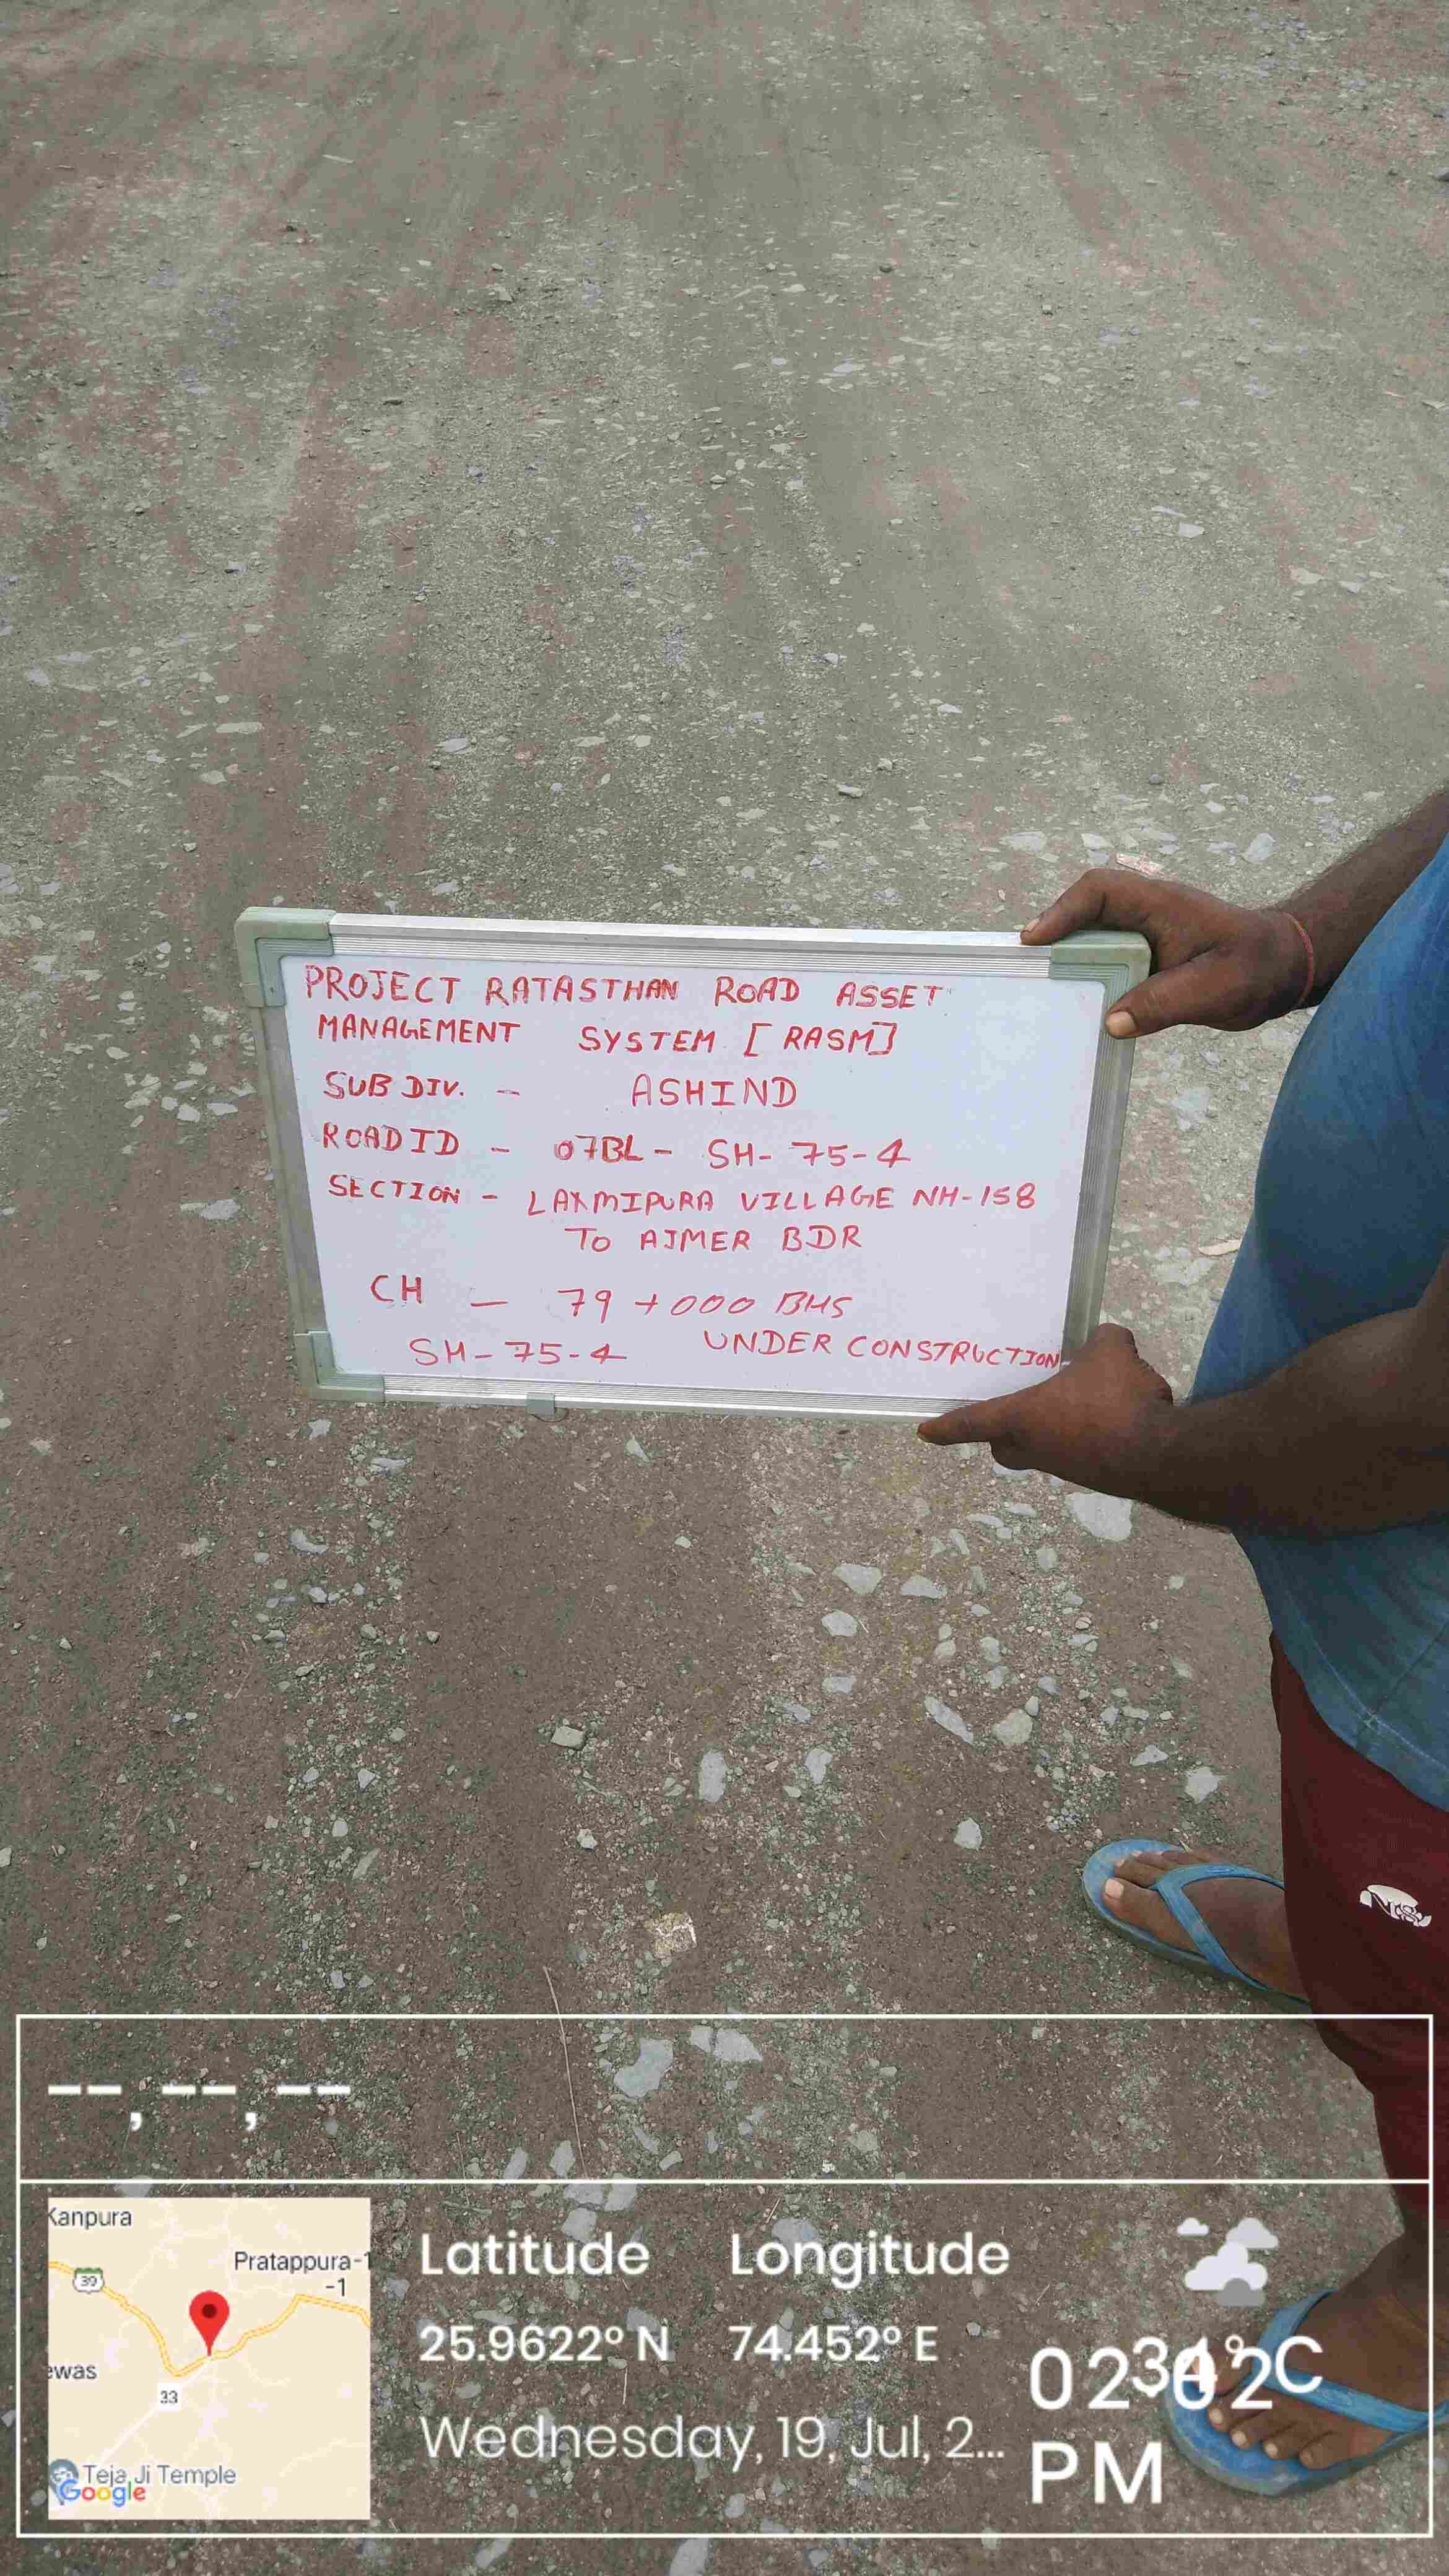 PROJECT RATASTHAN ROAD ASSET
MANAGEMENT SYSTEM [RASM]
SUB DIV. - ASHIND
ROAD ID - 07BL - SH-75-4
SECTION - LAXMIPURA VILLAGE NH-158
TO AJMER BDR
CH - 79+000 BHS
SH-75-4 UNDER CONSTRUCTION
--, --, --
Kanpura
Pratappura-1
-1
39
ewas
33
Teja Ji Temple
Google
Latitude Longitude
25.9622° N 74.452° E
Wednesday, 19, Jul, 2...
PM